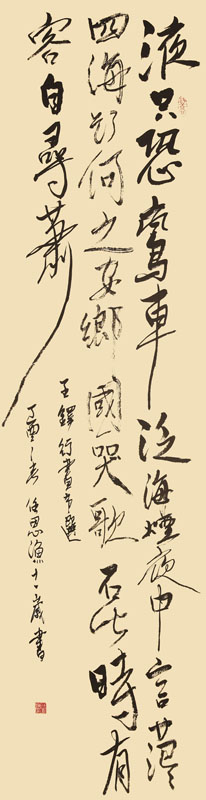 液只恐鸞車泛海煙夜中言蕩
四海欲何之安鄉國哭歌此時有
客自尋蕭
王鐸行書節選
丁酉之春任思漁十一歲書